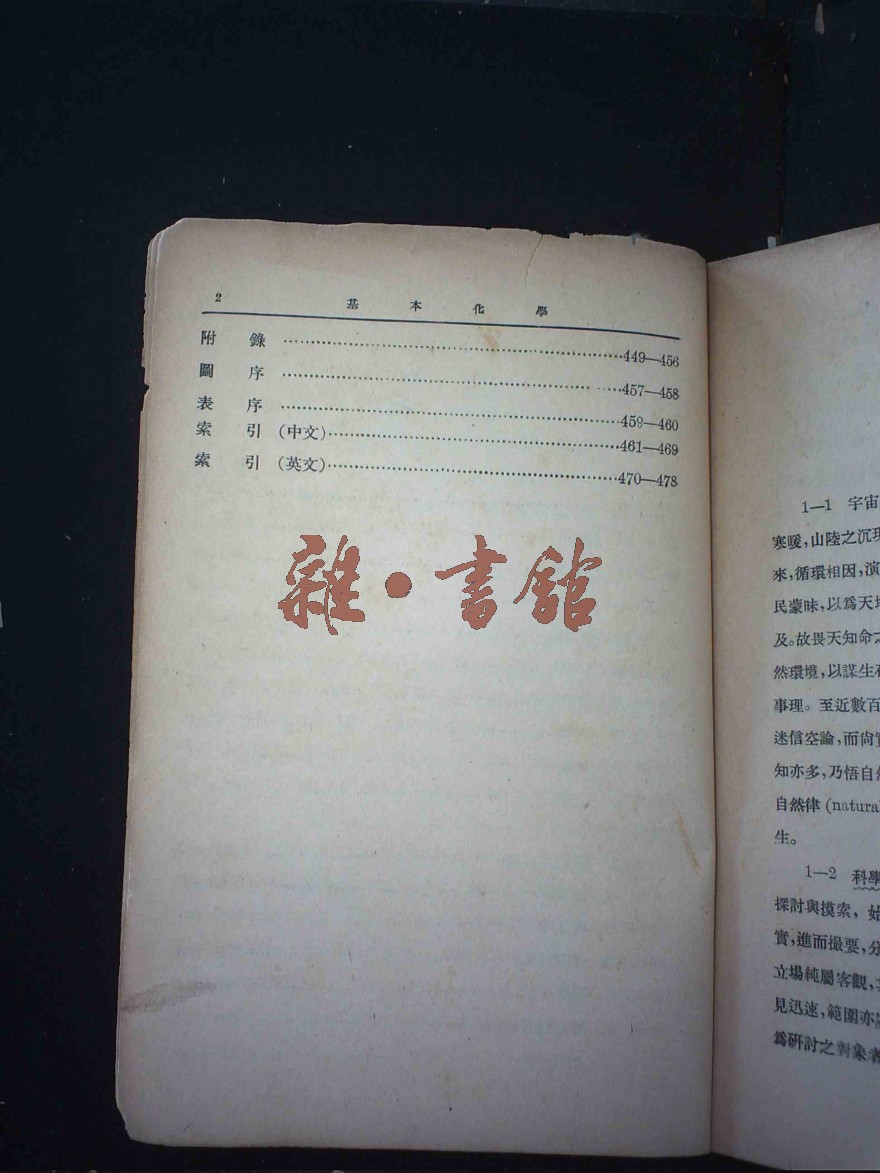 2 基本化學
附錄……449—456
圖序……457—458
表序……459—460
索引(中文)……461—469
索引(英文)……470—478
雜·書館
1—1 宇宙
寒暖,山陸之沉
來,循環相因,演
民蒙昧,以爲天
及。故畏天知命之
然環境,以謀生
事理。至近數百
迷信空論,而尙
知亦多,乃悟自
自然律(natura
生。
1—2 科學
探討與摸索,始
實,進而撮要,分
立場純屬客觀,
見迅速,範圍亦
爲硏討之對象者